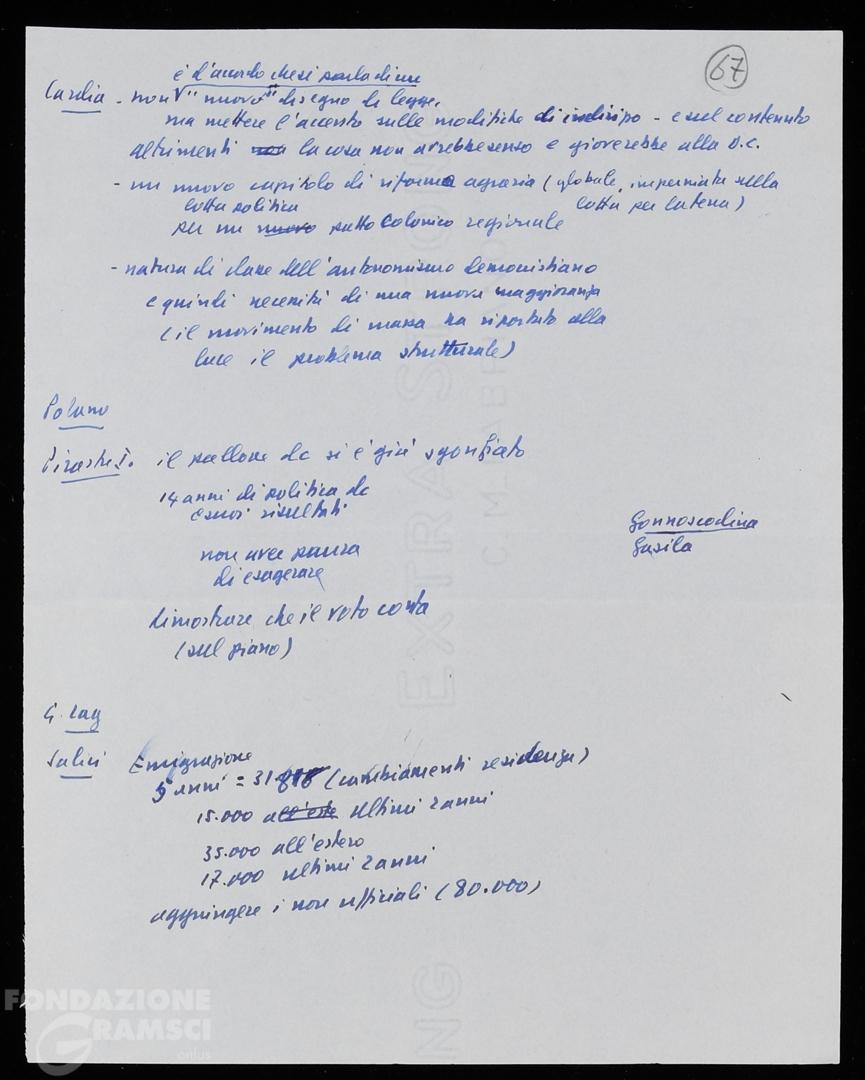 67
è d'accordo che si parla di un
Cardia - non "nuovo" disegno di legge,
ma mettere l'accento sulle modifiche di indirizzo - e sul contenuto
altrimenti non la cosa non avrebbe senso e gioverebbe alla D.C.
- un nuovo capitolo di riforma agraria (globale, imperniata sulla
lotta politica lotta per la terra)
per un nuovo patto colonico regionale
- natura di classe dell'autonomismo democristiano
e quindi necessità di una nuova maggioranza
(il movimento di massa ha riportato alla
luce il problema strutturale)
Polano
Pirastu I. il pallone dc si è già sgonfiato
14 anni di politica dc
e suoi risultati
Gonnoscodina
Gusila
non aver paura
di esagerare
dimostrare che il voto conta
(sul piano)
G. Lay
Salis Emigrazione
5 anni = 31 (cambiamenti residenza)
15.000 all'este ultimi 2 anni
35.000 all'estero
17.000 ultimi 2 anni
aggiungere i non ufficiali (80.000)
EXTRA STRONG
C. M. FABRIANO
NG
FONDAZIONE
GRAMSCI
onlus